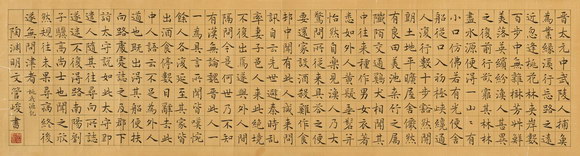 晉太元中武陵人捕魚
為業緣溪行忘路之遠
近忽逢桃花林夾岸數
百步中無雜樹芳草鮮
美落英繽紛漁人甚異
之復前行欲窮其林林
盡水源便得一山山有
小口仿佛若有光便舍
船從口入初極狹纔通
人復行數十步豁然開
朗土地平曠屋舍儼然
有良田美池桑竹之屬
阡陌交通雞犬相聞其
中往來種作男女衣著
悉如外人黃髮垂髫并
怡然自樂見漁人乃大
驚問所從來具答之便
要還家設酒殺雞作食
村中聞有此人咸來問
訊自云先世避秦時亂
率妻子邑人來此絕境
不復出焉遂與外人間
隔問今是何世乃不知
有漢無論魏晉此人一
一為具言所聞皆嘆惋
餘人各復延至其家皆
出酒食停數日辭去此
中人語云不足為外人
道也既出得其船便扶
向路處處誌之及郡下
詣太守說如此太守即
遣人隨其往尋向所誌
遂迷不復得路南陽劉
子驥高尚士也聞之欣
然規往未果尋病終後
遂無問津者 桃花源記
陶淵明文 管峻書